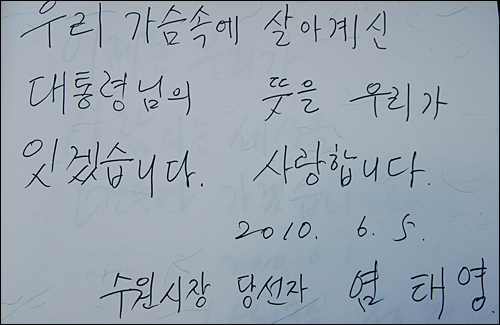 우리 가슴속에 살아계신
대통령님의 뜻을 우리가
잇겠습니다. 사랑합니다.
2010. 6. 5.
수원시장 당선자 염태영